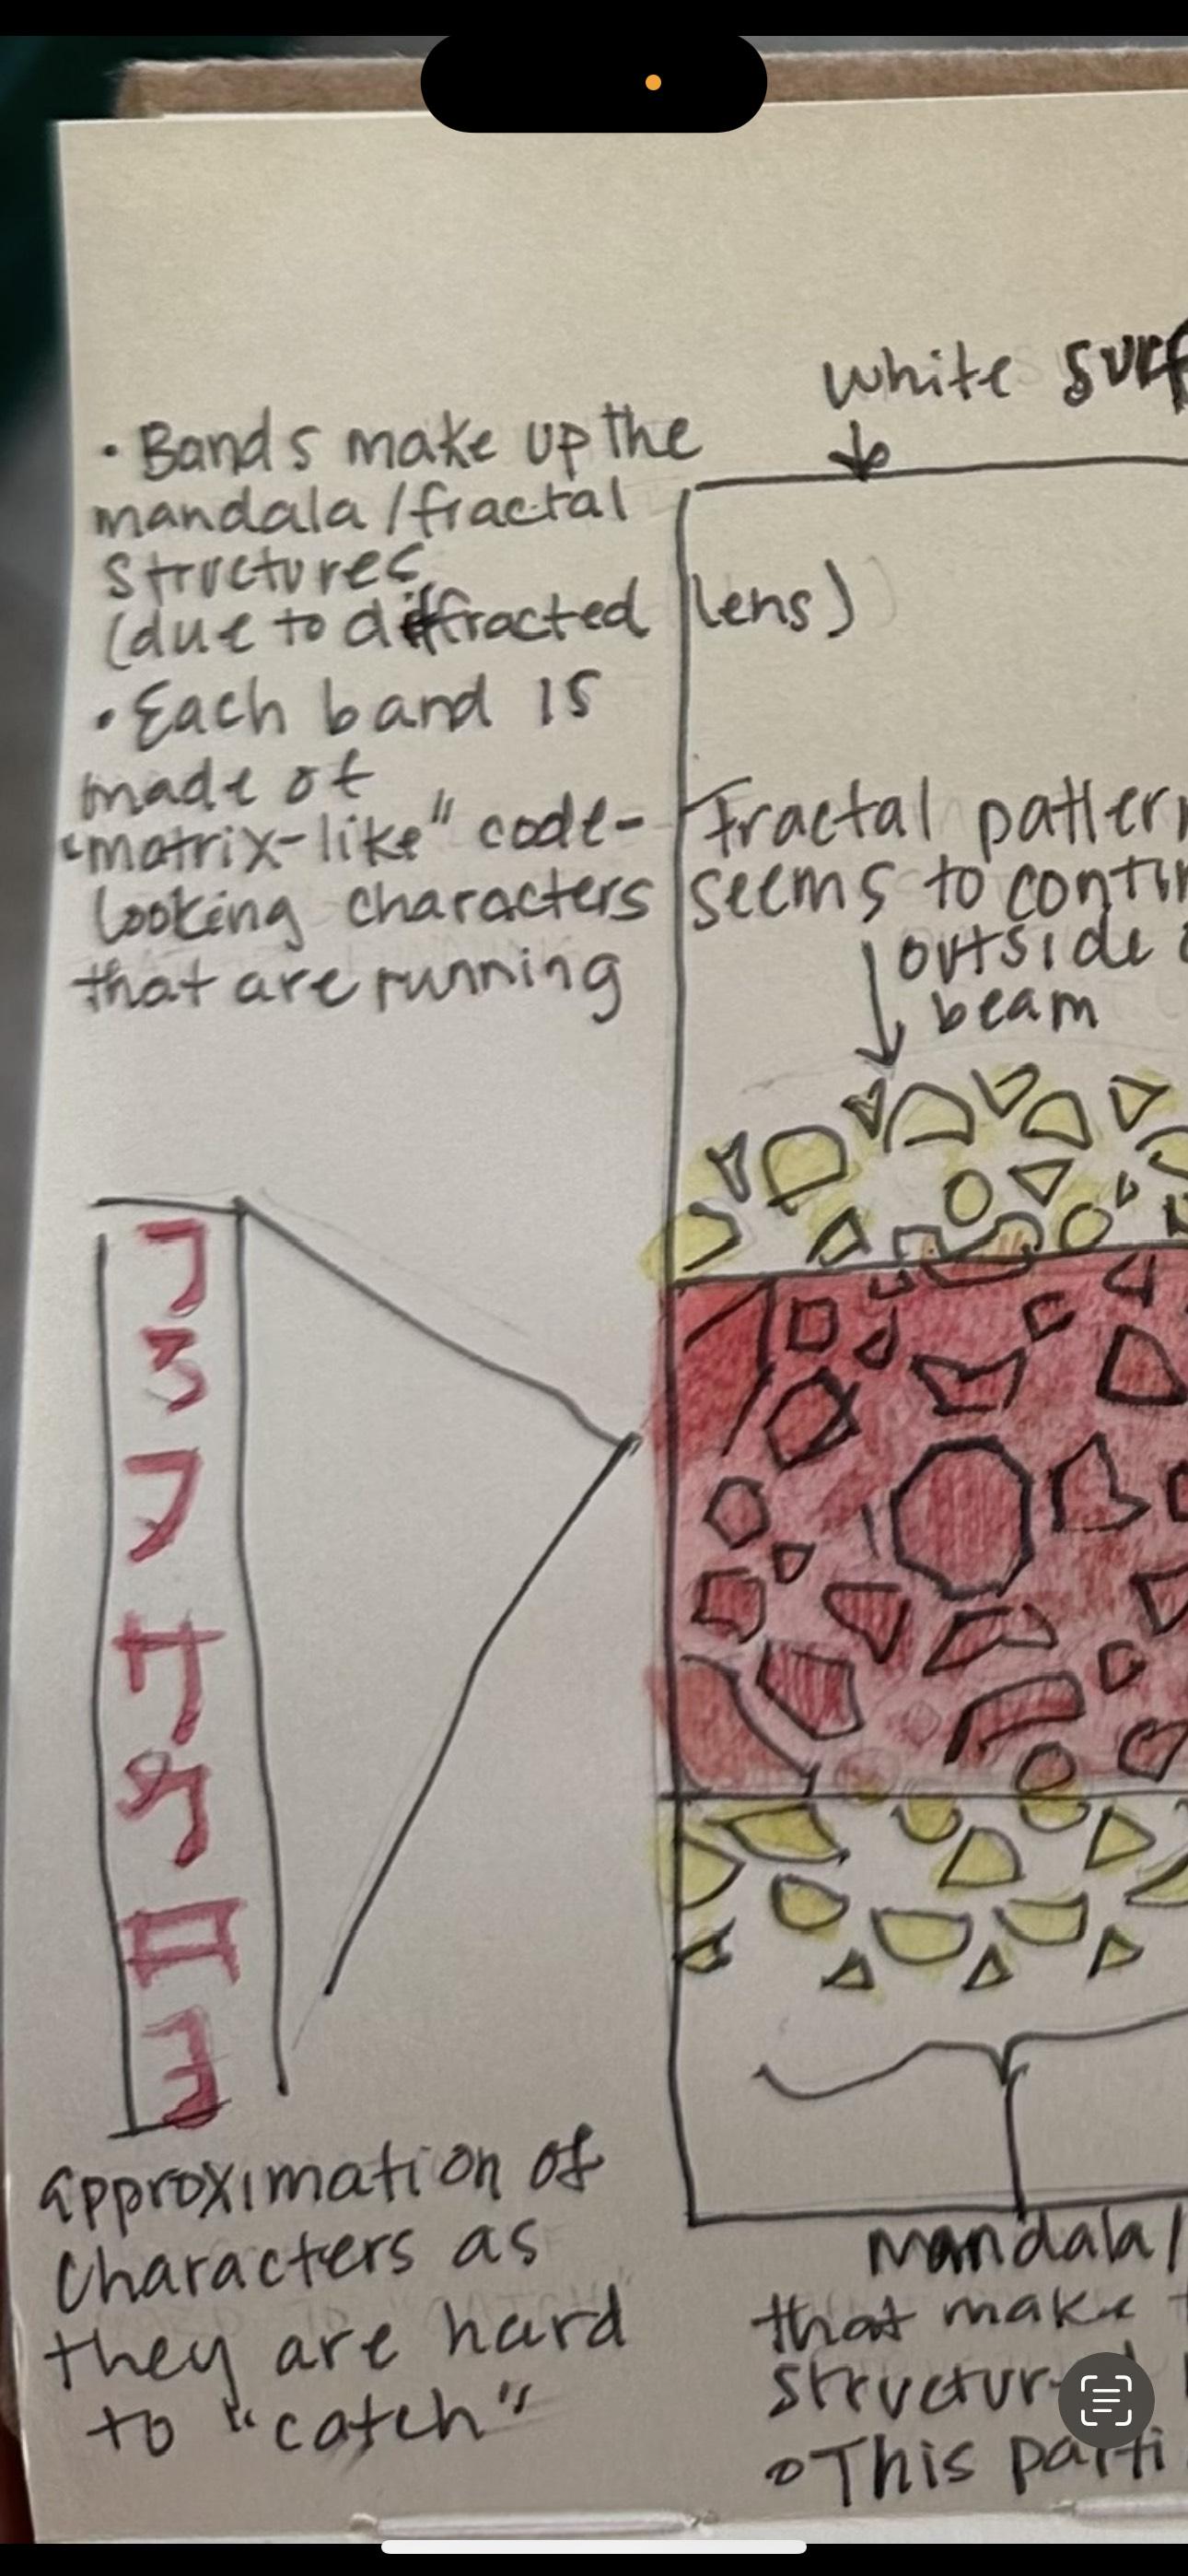 white
• Bands make up the
mandala/fractal
structures
(due to diffracted lens)
• Each band is
made of
"matrix-like" code-
looking characters
that are running
Fractal
seems to
outside
beam
approximation of
characters as
they are hard
to "catch"
mandala/
that make
• This